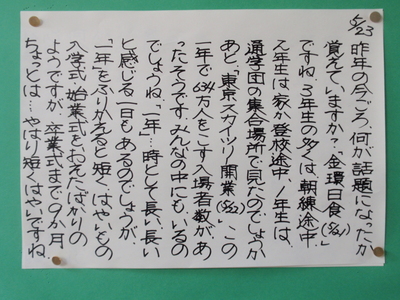 5/23
昨年の今ごろ、何が話題になったか
覚えていますか?「金環日食(5/21)」
ですね。3年生の多くは、朝練途中、
2年生は、家か登校途中、1年生は、
通学団の集合場所で見たのでしょうか。
あと、「東京スカイツリー開業(5/22)」。この
一年で634万人をこす入場者数が、あ
ったそうです。みんなの中にも、いるの
でしょうね。「一年」…時として長い、長い
と感じる一日もあるのでしょうが、
「一年」をふりかえると短く、はやいもの
入学式・始業式をおえたばかりの
ようですが、卒業式まで9か月
ちょっとは…やはり短く、はやいですね。